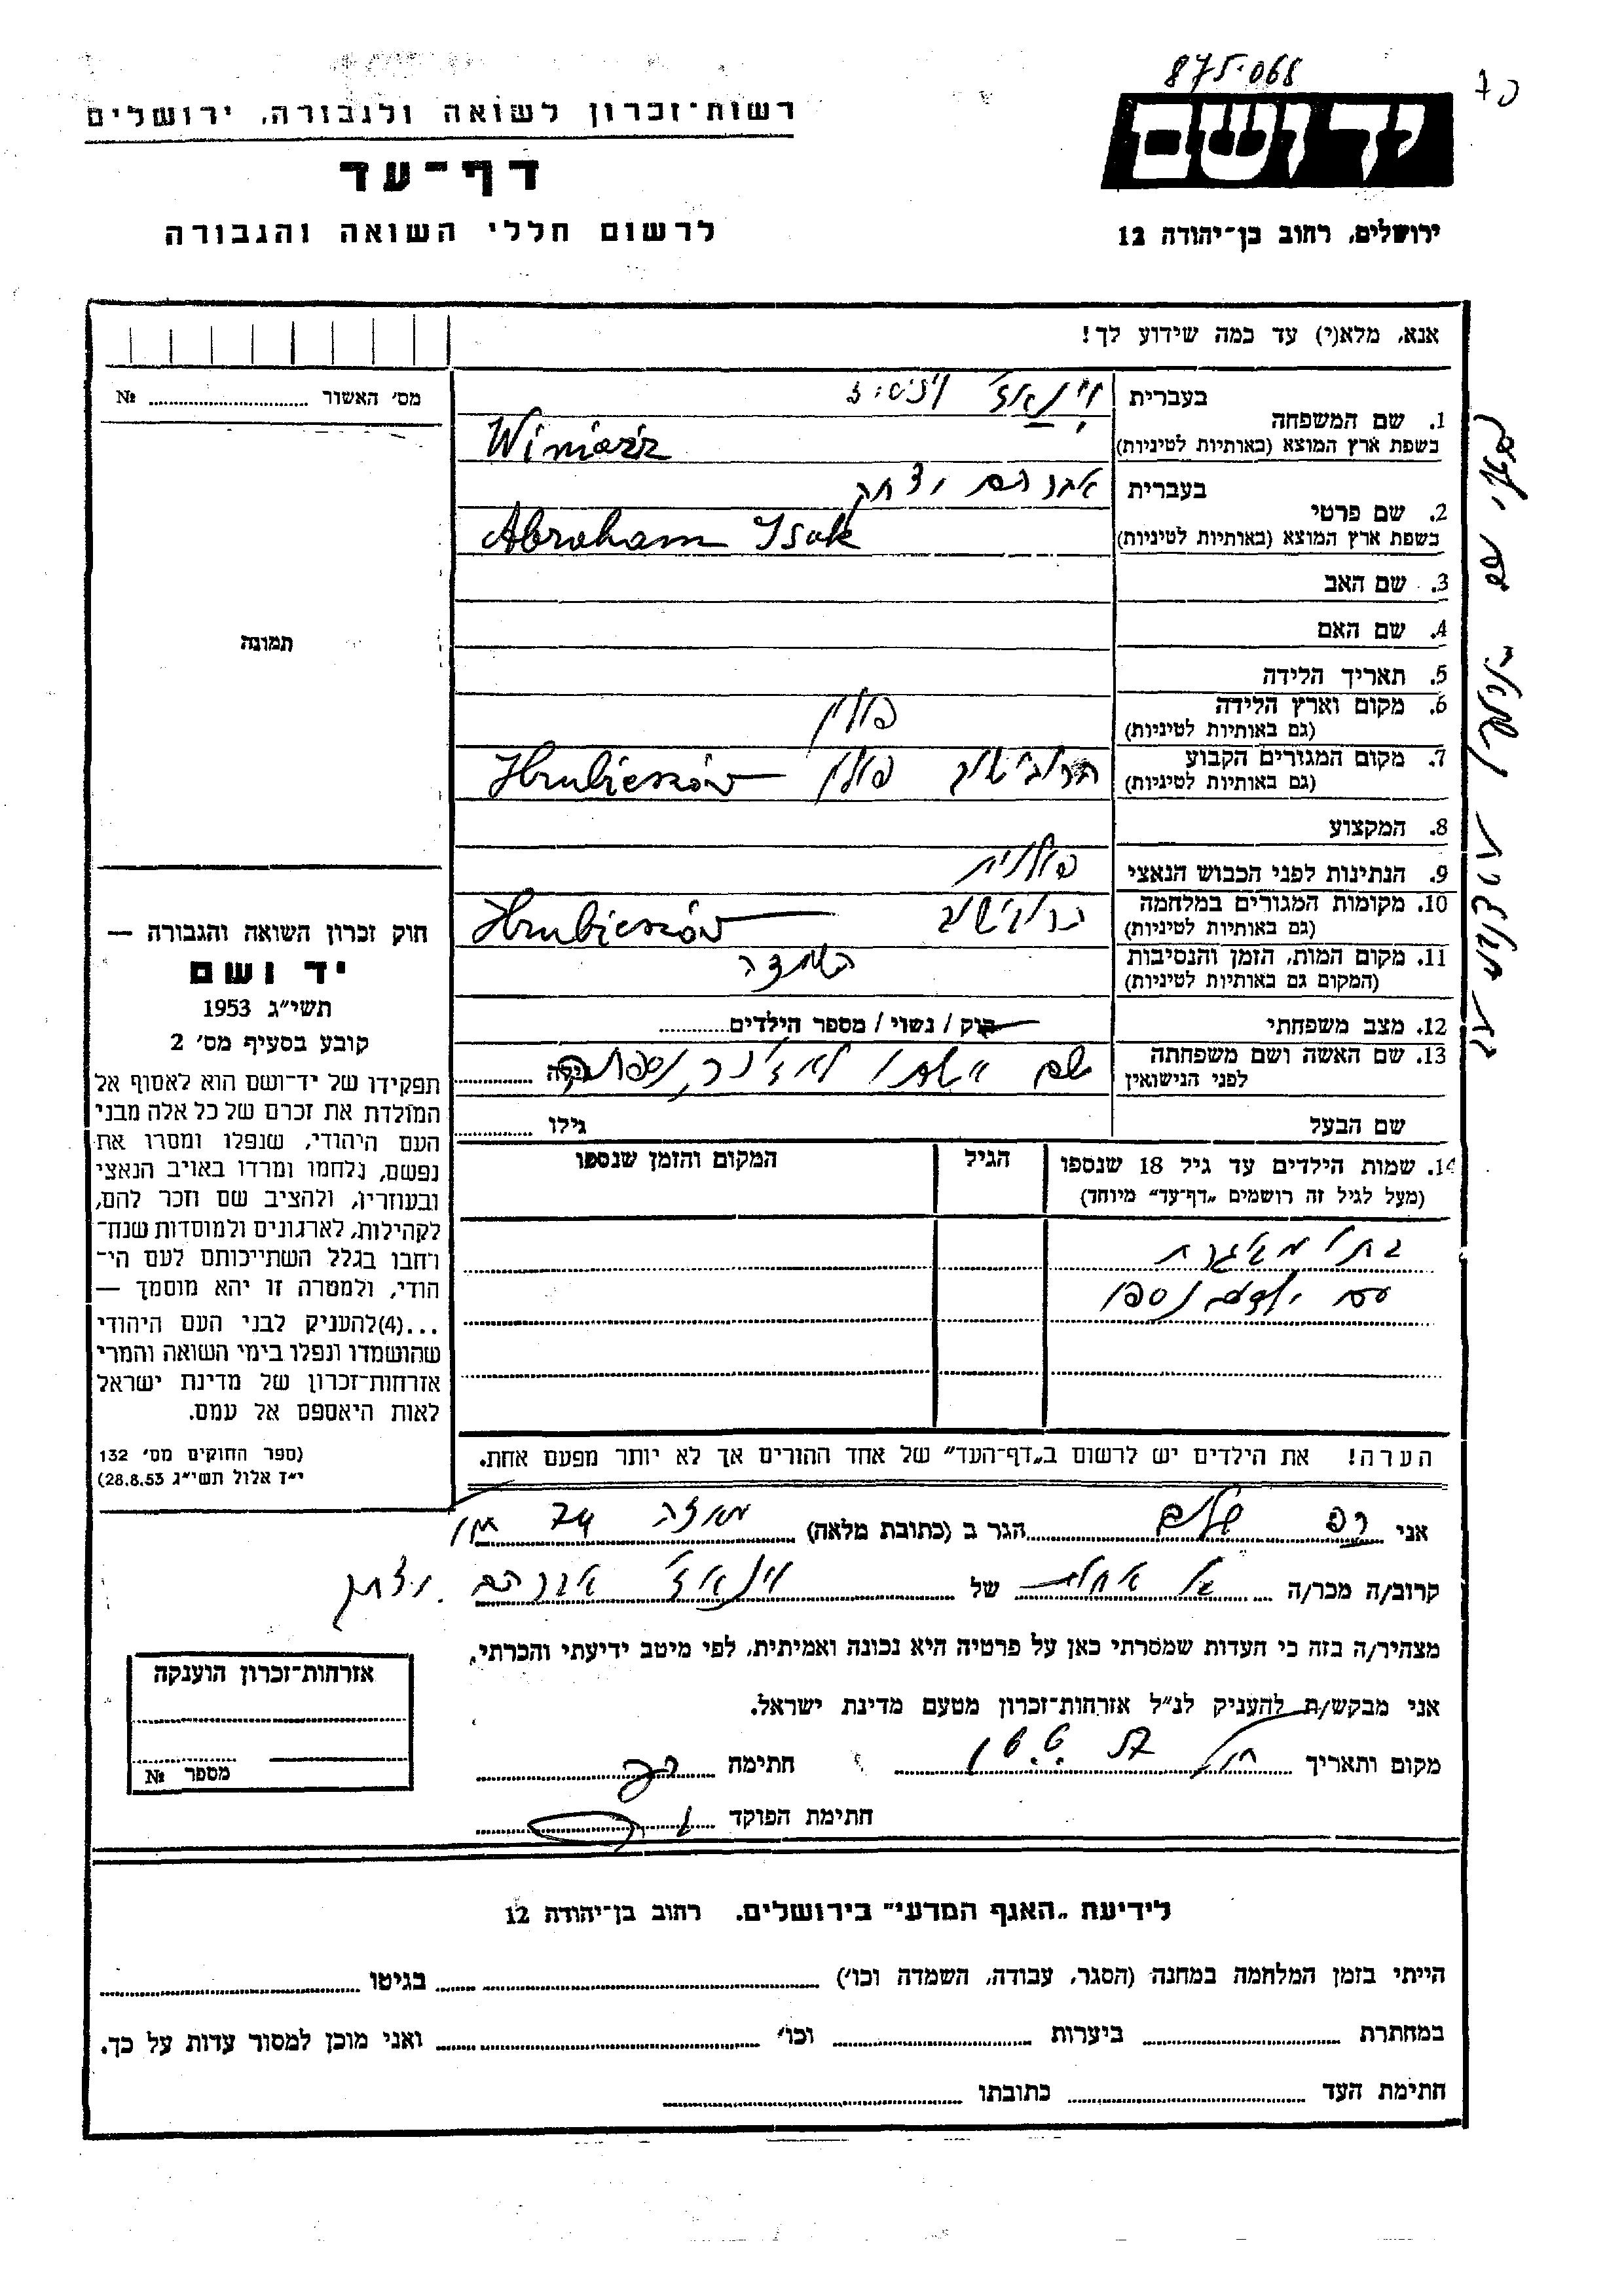 875.068
רשות-זכרון לשואה ולגבורה, ירושלים
דף-עד
לרשום חללי השואה והגבורה
ידושם
ירושלים, רחוב בן-יהודה 12
אנא, מלא(י) עד כמה שידוע לך!
מס' האשור № 
1. שם המשפחה
בעברית
בשפת ארץ המוצא (באותיות לטיניות) Winiarz
2. שם פרטי
בעברית אברהם יצחק
בשפת ארץ המוצא (באותיות לטיניות) Abraham Isak
3. שם האב
4. שם האם
תמונה
5. תאריך הלידה
6. מקום וארץ הלידה פולין
(גם באותיות לטיניות)
7. מקום המגורים הקבוע פולין Hrubieszów
(גם באותיות לטיניות)
8. המקצוע
9. הנתינות לפני הכבוש הנאצי פולנית
10. מקומות המגורים במלחמה Hrubieszów
(גם באותיות לטיניות)
11. מקום המות, הזמן והנסיבות השמדה
(המקום גם באותיות לטיניות)
12. מצב משפחתי רוק / נשוי / מספר הילדים
13. שם האשה ושם משפחתה
לפני הנישואין
שם אשתו
גילה
שם הבעל גילו
14. שמות הילדים עד גיל 18 שנספו הגיל המקום והזמן שנספו
(מעל לגיל זה רושמים „דף-עד" מיוחד)
בתו מבוגרת
עם ילדים נספו
הערה! את הילדים יש לרשום ב„דף-העד" של אחד ההורים אך לא יותר מפעם אחת.
חוק זכרון השואה והגבורה —
יד ושם
תשי"ג 1953
קובע בסעיף מס' 2
תפקידו של יד-ושם הוא לאסוף אל
המולדת את זכרם של כל אלה מבני
העם היהודי, שנפלו ומסרו את
נפשם, נלחמו ומרדו באויב הנאצי
ובעוזריו, ולהציב שם וזכר להם,
לקהילות, לארגונים ולמוסדות שנח-
רחבו בגלל השתייכותם לעם הי-
הודי, ולמטרה זו יהא מוסמך —
...(4)להעניק לבני העם היהודי
שהושמדו ונפלו בימי השואה והמרי
אזרחות-זכרון של מדינת ישראל
לאות היאספם אל עמם.
(ספר החוקים מס' 132
י"ז אלול תשי"ג 28.8.53)
אני שלום הגר ב (כתובת מלאה) 74
קרוב/ה מכר/ה של אברהם יצחק
מצהיר/ה בזה כי העדות שמסרתי כאן על פרטיה היא נכונה ואמיתית, לפי מיטב ידיעתי והכרתי.
אני מבקש/ת להעניק לנ"ל אזרחות-זכרון מטעם מדינת ישראל.
מקום ותאריך חתימה
חתימת הפוקד
אזרחות-זכרון הוענקה
מספר №
לידיעת „האגף המדעי" בירושלים, רחוב בן-יהודה 12
הייתי בזמן המלחמה במחנה (הסגר, עבודה, השמדה וכו') בגיטו
במחתרת ביערות וכו' ואני מוכן למסור עדות על כך.
חתימת העד כתובתו